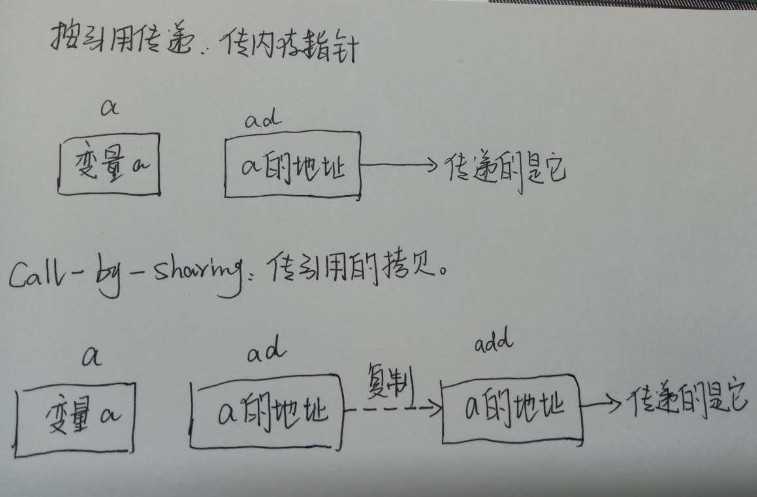 按引用传递：传内存指针
a
ad
变量a
a的地址
传递的是它
Call-by-sharing：传引用的拷贝。
a
ad
add
变量a
a的地址
复制
a的地址
传递的是它